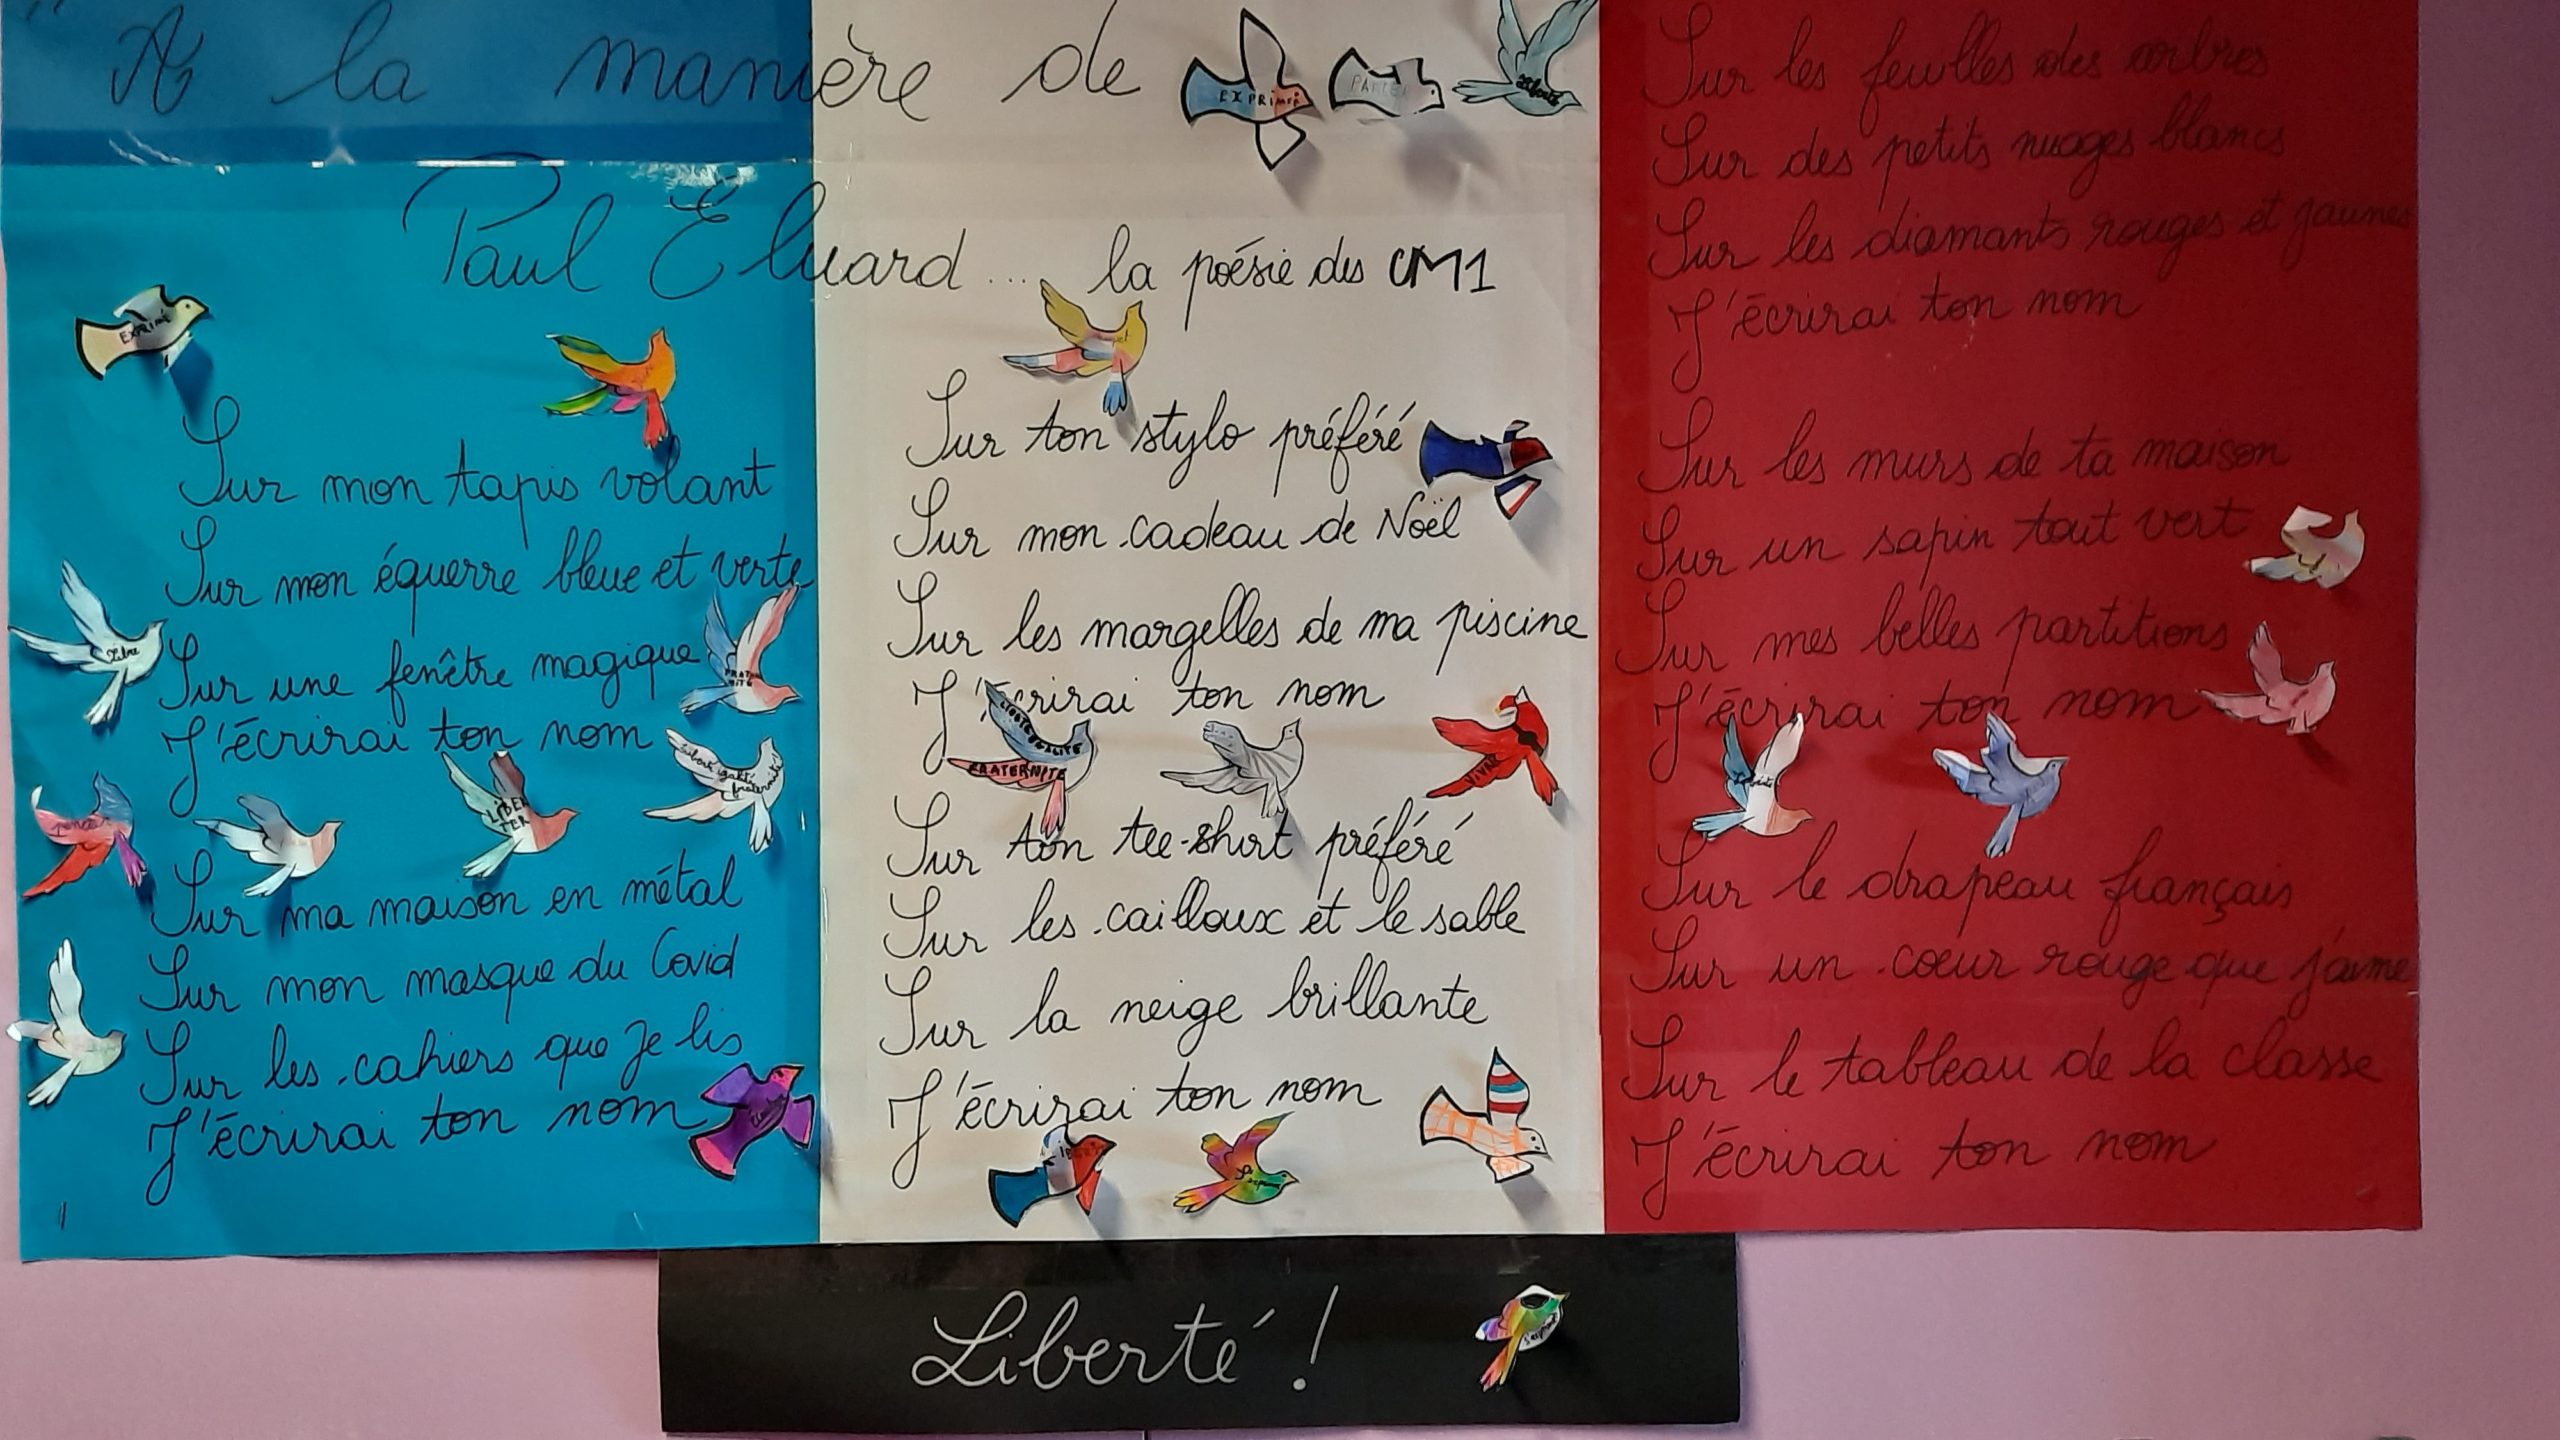 "A la manière de
Paul Eluard .... la poésie des CM1
EXPRIMÉ
Liberté
EXPRIMÉ
Sur mon tapis volant
Sur mon équerre bleue et verte
Sur une fenêtre magique
J'écrirai ton nom
Libre
FRATERNITÉ
LIBERTER
Liberté égalité fraternité
Sur ma maison en métal
Sur mon masque du Covid
Sur les cahiers que je lis
J'écrirai ton nom
Sur ton stylo préféré
Sur mon cadeau de Noël
Sur les margelles de ma piscine
J'écrirai ton nom
FRATERNITE
VIVRE
Sur ton tee-shirt préféré
Sur les cailloux et le sable
Sur la neige brillante
J'écrirai ton nom
Sur les feuilles des arbres
Sur des petits nuages blancs
Sur les diamants rouges et jaunes
J'écrirai ton nom
Sur les murs de ta maison
Sur un sapin tout vert
Sur mes belles partitions
J'écrirai ton nom
Sur le drapeau français
Sur un coeur rouge que j'aime
Sur le tableau de la classe
J'écrirai ton nom
Liberté !